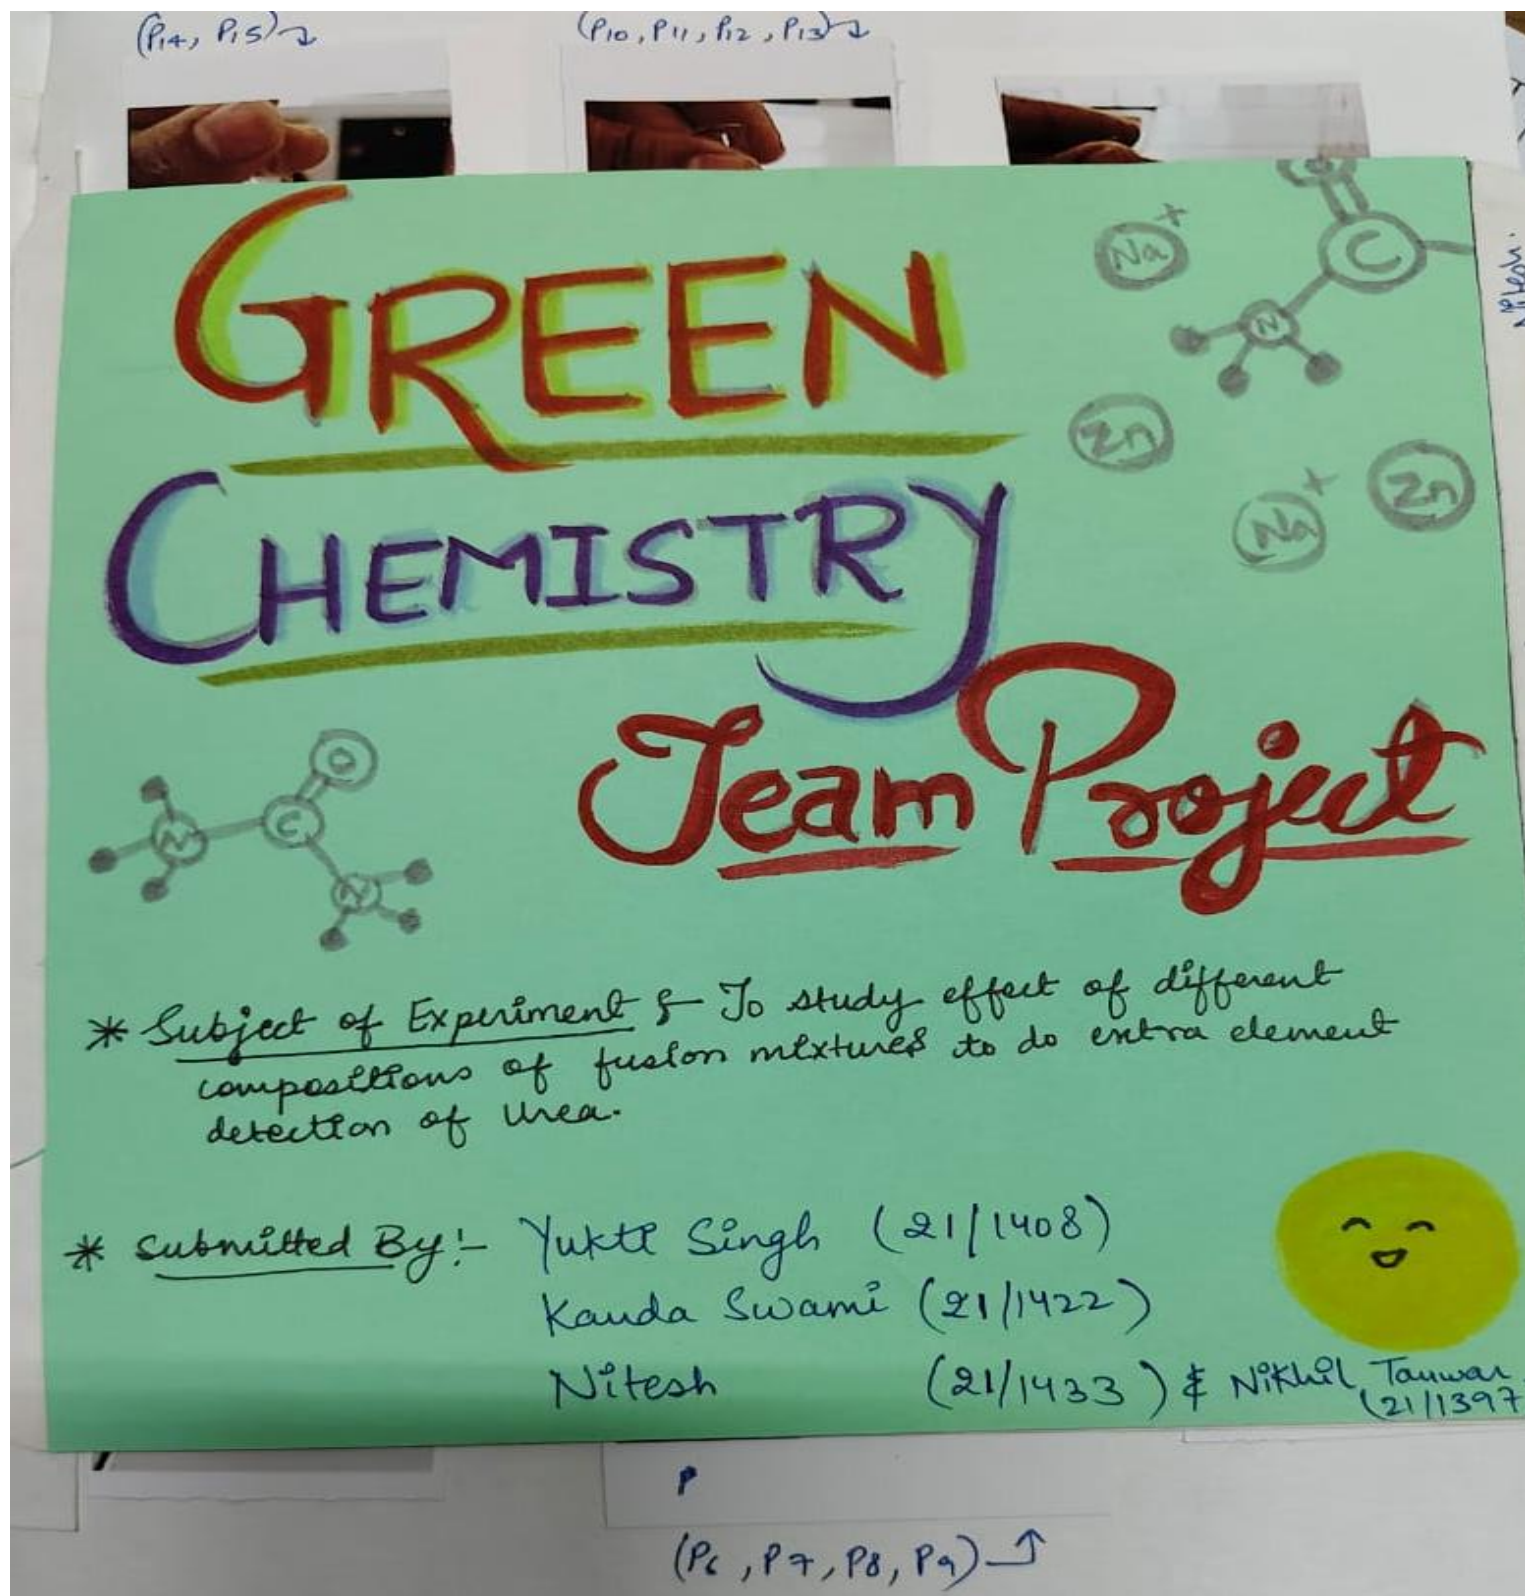 (P14, P15)
(P10, P11, P12, P13)
GREEN
CHEMISTRY
Team Project
Na+
C
N
Zn
Na+
Zn
O
N
C
N
* Subject of Experiment :- To study effect of different
compositions of fusion mixtures to do extra element
detection of Urea.
* Submitted By :- Yukti Singh (21/1408)
Kanda Swami (21/1422)
Nitesh (21/1433) & Nikhil Tanwar
(21/1397
Nitesh.
P
(P6, P7, P8, P9)